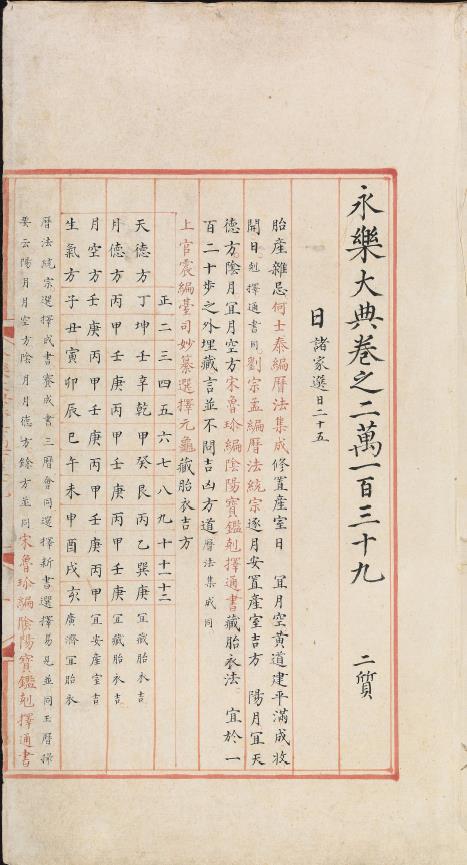 永樂大典卷之二萬一百三十九 二質
日 諸家選日二十五
胎產雜忌何士泰編曆法集成修置產室日 宜月空黄道建平滿成收
開日剋擇通書同劉宗孟編曆法統宗逐月安置產室吉方 陽月宜天
德方陰月宜月空方宋魯珍編陰陽寶鑑剋擇通書藏胎衣法 宜於一
百二十步之外埋藏言並不問吉凶方道曆法集成同
上官震編臺司妙纂選擇元龜藏胎衣吉方
正二三四五六七八九十十一十二
天德方丁坤壬辛乾甲癸艮丙乙巽庚宜藏胎衣吉
月德方丙甲壬庚丙甲壬庚丙甲壬庚宜藏胎衣吉
月空方壬庚丙甲壬庚丙甲壬庚丙甲宜安產室吉
生氣方子丑寅卯辰巳午未申酉戌亥廣濟宜胎衣
曆法統宗選擇成書賽成書三曆會同選擇新書選擇易見並同玉曆撮
要云陽月月空方陰月月德方餘方並同宋魯珍編陰陽寶鑑剋擇通書